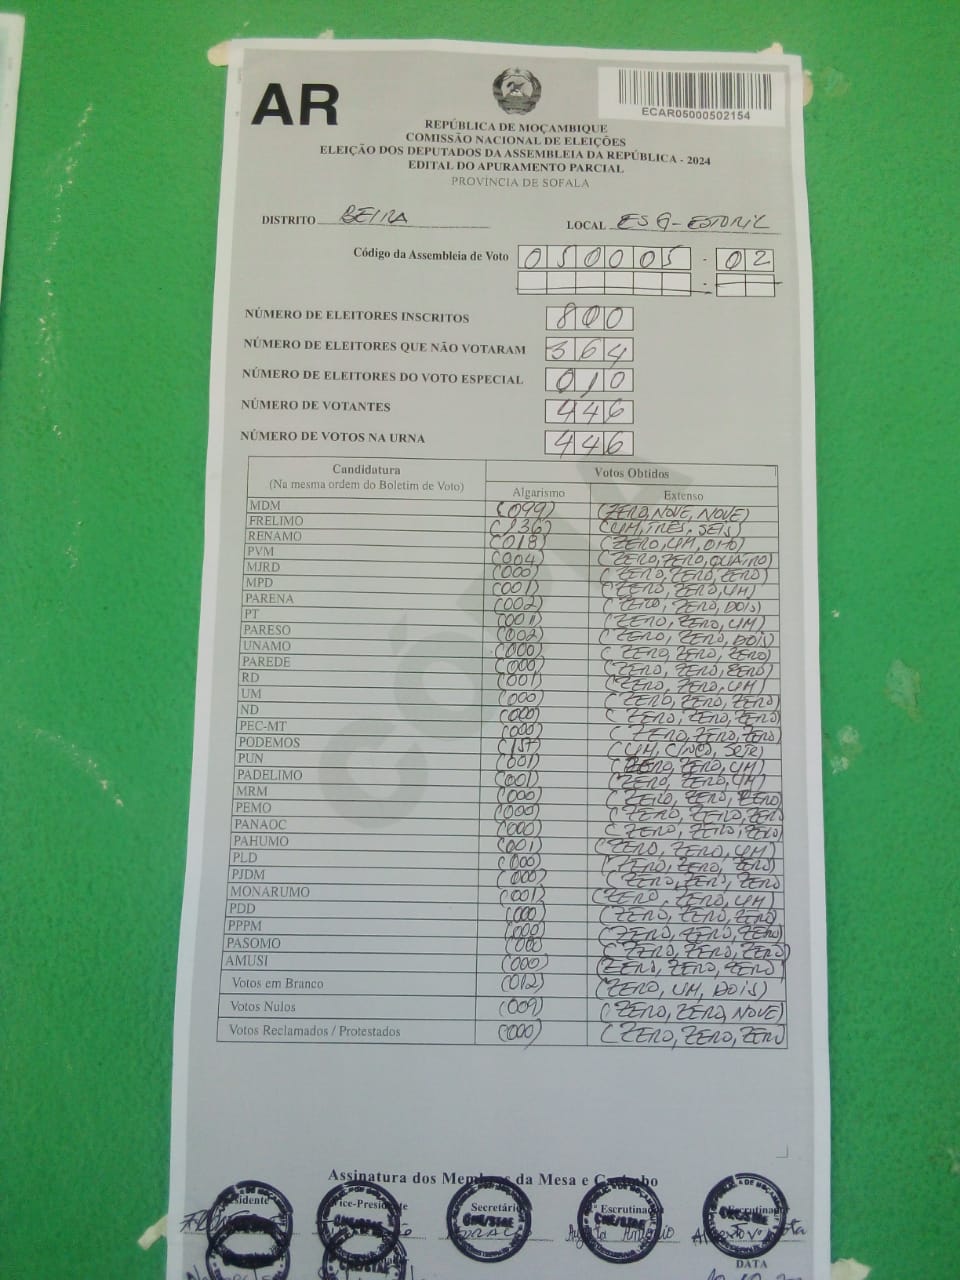 AR
ECAR05000502154
REPÚBLICA DE MOÇAMBIQUE
COMISSÃO NACIONAL DE ELEIÇÕES
ELEIÇÃO DOS DEPUTADOS DA ASSEMBLEIA DA REPÚBLICA - 2024
EDITAL DO APURAMENTO PARCIAL
PROVÍNCIA DE SOFALA
DISTRITO BEIRA LOCAL ESG-ESTORIL
Código da Assembleia de Voto 050005 - 02
NÚMERO DE ELEITORES INSCRITOS 800
NÚMERO DE ELEITORES QUE NÃO VOTARAM 364
NÚMERO DE ELEITORES DO VOTO ESPECIAL 010
NÚMERO DE VOTANTES 446
NÚMERO DE VOTOS NA URNA 446
Candidatura Votos Obtidos
(Na mesma ordem do Boletim de Voto) Algarismo Extenso
MDM (099) (ZERO, NOVE, NOVE)
FRELIMO (136) (UM, TRÊS, SEIS)
RENAMO (018) (ZERO, UM, OITO)
PVM (004) (ZERO, ZERO, QUATRO)
MJRD (000) (ZERO, ZERO, ZERO)
MPD (001) (ZERO, ZERO, UM)
PARENA (002) (ZERO, ZERO, DOIS)
PT (001) (ZERO, ZERO, UM)
PARESO (002) (ZERO, ZERO, DOIS)
UNAMO (000) (ZERO, ZERO, ZERO)
PAREDE (000) (ZERO, ZERO, ZERO)
RD (001) (ZERO, ZERO, UM)
UM (000) (ZERO, ZERO, ZERO)
ND (000) (ZERO, ZERO, ZERO)
PEC-MT (000) (ZERO, ZERO, ZERO)
PODEMOS (157) (UM, CINCO, SETE)
PUN (001) (ZERO, ZERO, UM)
PADELIMO (001) (ZERO, ZERO, UM)
MRM (000) (ZERO, ZERO, ZERO)
PEMO (000) (ZERO, ZERO, ZERO)
PANAOC (000) (ZERO, ZERO, ZERO)
PAHUMO (001) (ZERO, ZERO, UM)
PLD (000) (ZERO, ZERO, ZERO)
PJDM (000) (ZERO, ZERO, ZERO)
MONARUMO (001) (ZERO, ZERO, UM)
PDD (000) (ZERO, ZERO, ZERO)
PPPM (000) (ZERO, ZERO, ZERO)
PASOMO (000) (ZERO, ZERO, ZERO)
AMUSI (000) (ZERO, ZERO, ZERO)
Votos em Branco (012) (ZERO, UM, DOIS)
Votos Nulos (009) (ZERO, ZERO, NOVE)
Votos Reclamados / Protestados (000) (ZERO, ZERO, ZERO
CÓPIA
Assinatura dos Membros da Mesa e Carimbo
Presidente Vice-Presidente Secretário Escrutinador Escrutinador
CNE/STAE CNE/STAE CNE/STAE
António
DATA